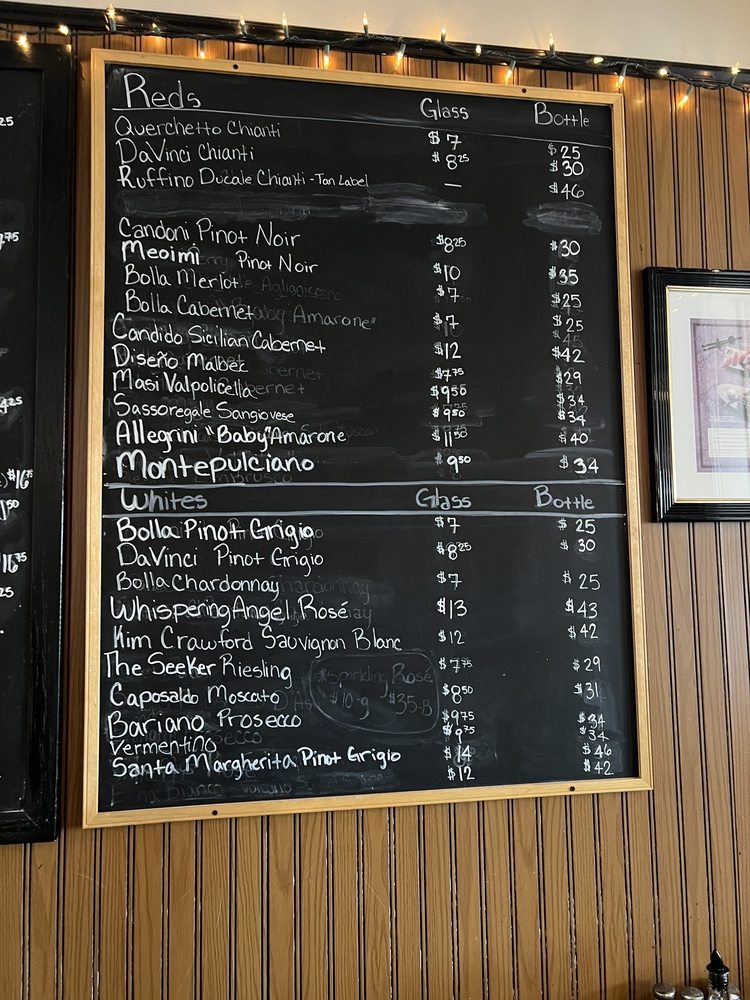 Reds Glass Bottle
Querchetto Chianti $7 $25
DaVinci Chianti $8.25 $30
Ruffino Ducale Chianti - Tan Label — $46
Candoni Pinot Noir $8.25 $30
Meoimi Pinot Noir $10 $35
Bolla Merlot $7 $25
Bolla Cabernet $7 $25
Candido Sicilian Cabernet $12 $42
Diseño Malbec $7.75 $29
Masi Valpolicella $9.50 $34
Sassoregale Sangiovese $9.50 $34
Allegrini "Baby" Amarone $11.50 $40
Montepulciano $9.50 $34
Whites Glass Bottle
Bolla Pinot Grigio $7 $25
DaVinci Pinot Grigio $8.25 $30
Bolla Chardonnay $7 $25
Whispering Angel Rosé $13 $43
Kim Crawford Sauvignon Blanc $12 $42
The Seeker Riesling $7.75 $29
Caposaldo Moscato $8.50 $31
Bariano Prosecco $9.75 $34
Vermentino $9.75 $34
Santa Margherita Pinot Grigio $14 $46
$12 $42
*Sparkling Rosé
$10-g $35-B
$16.75